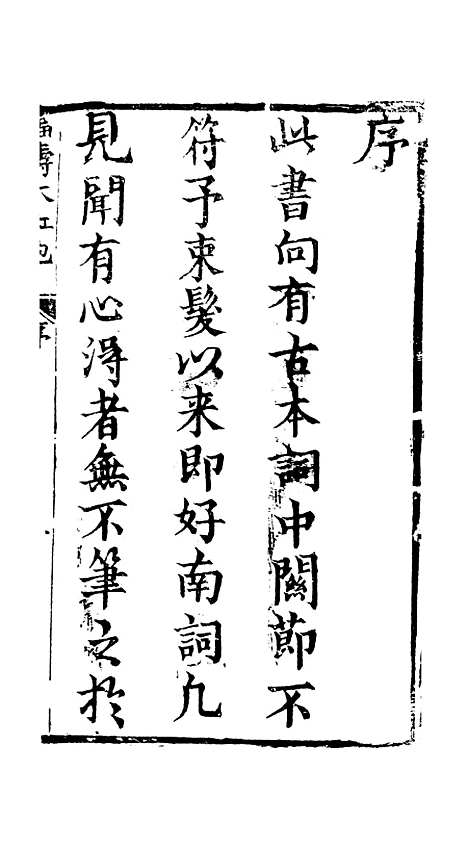 序
此書向有古本詞中關節不
符予束髮以来即好南詞凢
見聞有心淂者無不筆之於